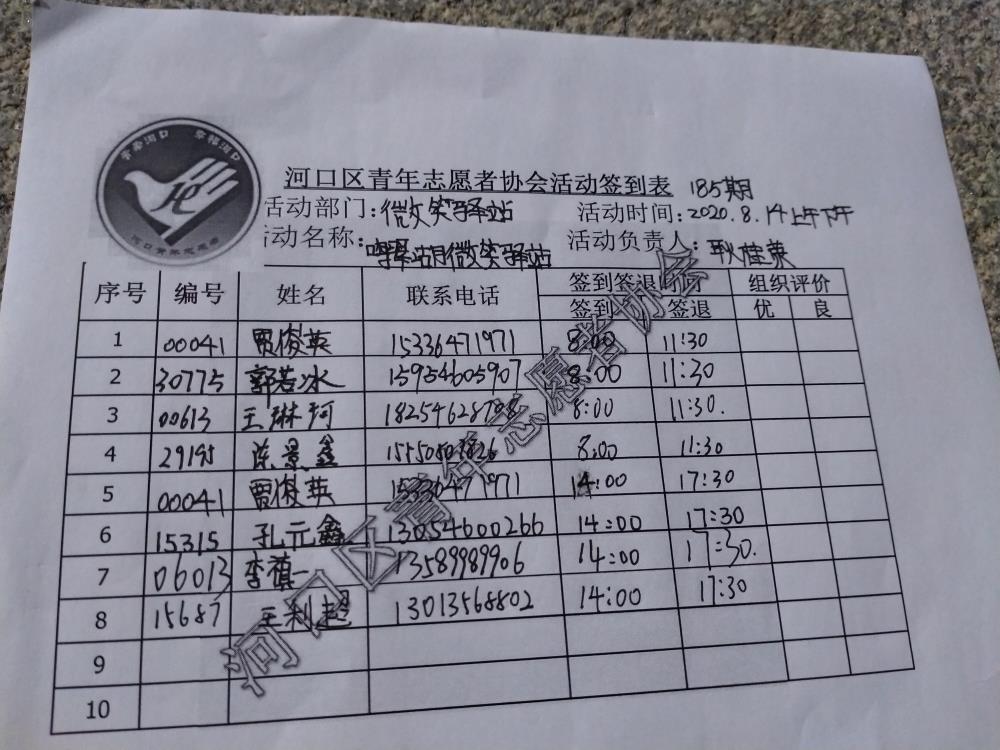 河口区青年志愿者协会活动签到表 185期
活动部门:微笑驿站 活动时间:2020.8.14上午下午
活动名称: 鸣翠湖微笑驿站 活动负责人:耿桂荣
序号 编号 姓名 联系电话 签到签退时间 组织评价
签到 签退 优 良
1 00041 贾俊英 15336471971 8:00 11:30
2 30775 郭若冰 15954605907 8:00 11:30
3 00613 王琳珂 18254628708 8:00 11:30.
4 29195 陈景鑫 8:00 11:30
5 00041 贾俊英 15336471971 14:00 17:30
6 15315 孔元鑫 13054600266 14:00 17:30
7 06013 李禛一 13589989906 14:00 17:30.
8 15687 王利超 13013568802 14:00 17:30
9
10
河口区青年志愿者协会